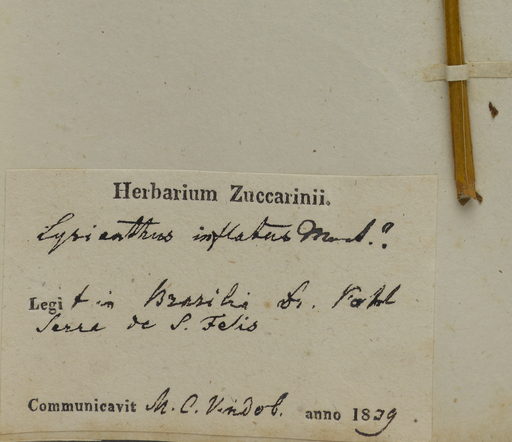 Herbarium Zuccarinii.
Lysianthus inflatus Mart.?
Legit in Brasilia Dr. Pohl
Serra de S. Felis
Communicavit M. C. Vindob. anno 1839.